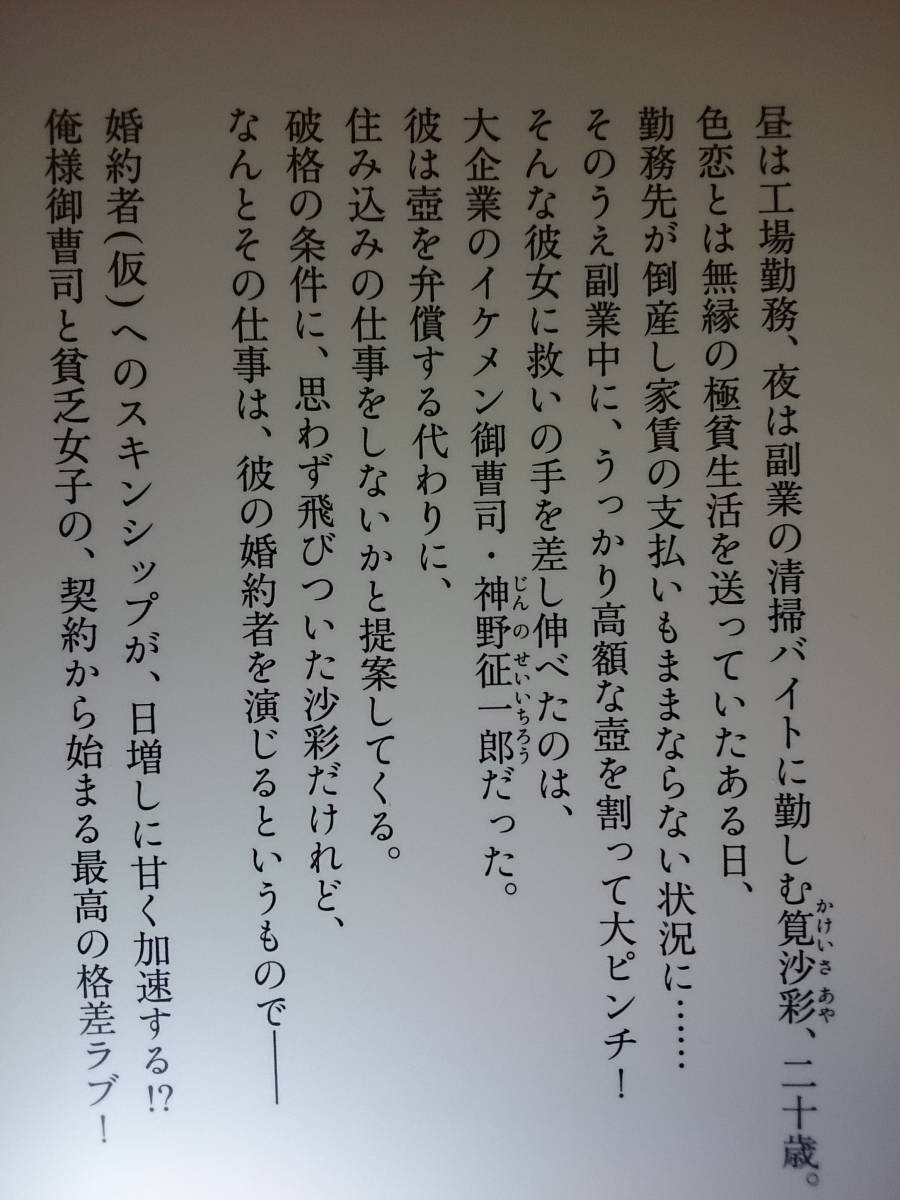 昼は工場勤務、夜は副業の清掃バイトに勤しむ筧沙彩、二十歳。
かけいさあや
色恋とは無縁の極貧生活を送っていたある日、
勤務先が倒産し家賃の支払いもままならない状況に……
そのうえ副業中に、うっかり高額な壺を割って大ピンチ！
そんな彼女に救いの手を差し伸べたのは、
大企業のイケメン御曹司・神野征一郎だった。
じんのせいいちろう
彼は壺を弁償する代わりに、
住み込みの仕事をしないかと提案してくる。
破格の条件に、思わず飛びついた沙彩だけれど、
なんとその仕事は、彼の婚約者を演じるというもので――
婚約者(仮)へのスキンシップが、日増しに甘く加速する!?
俺様御曹司と貧乏女子の、契約から始まる最高の格差ラブ！